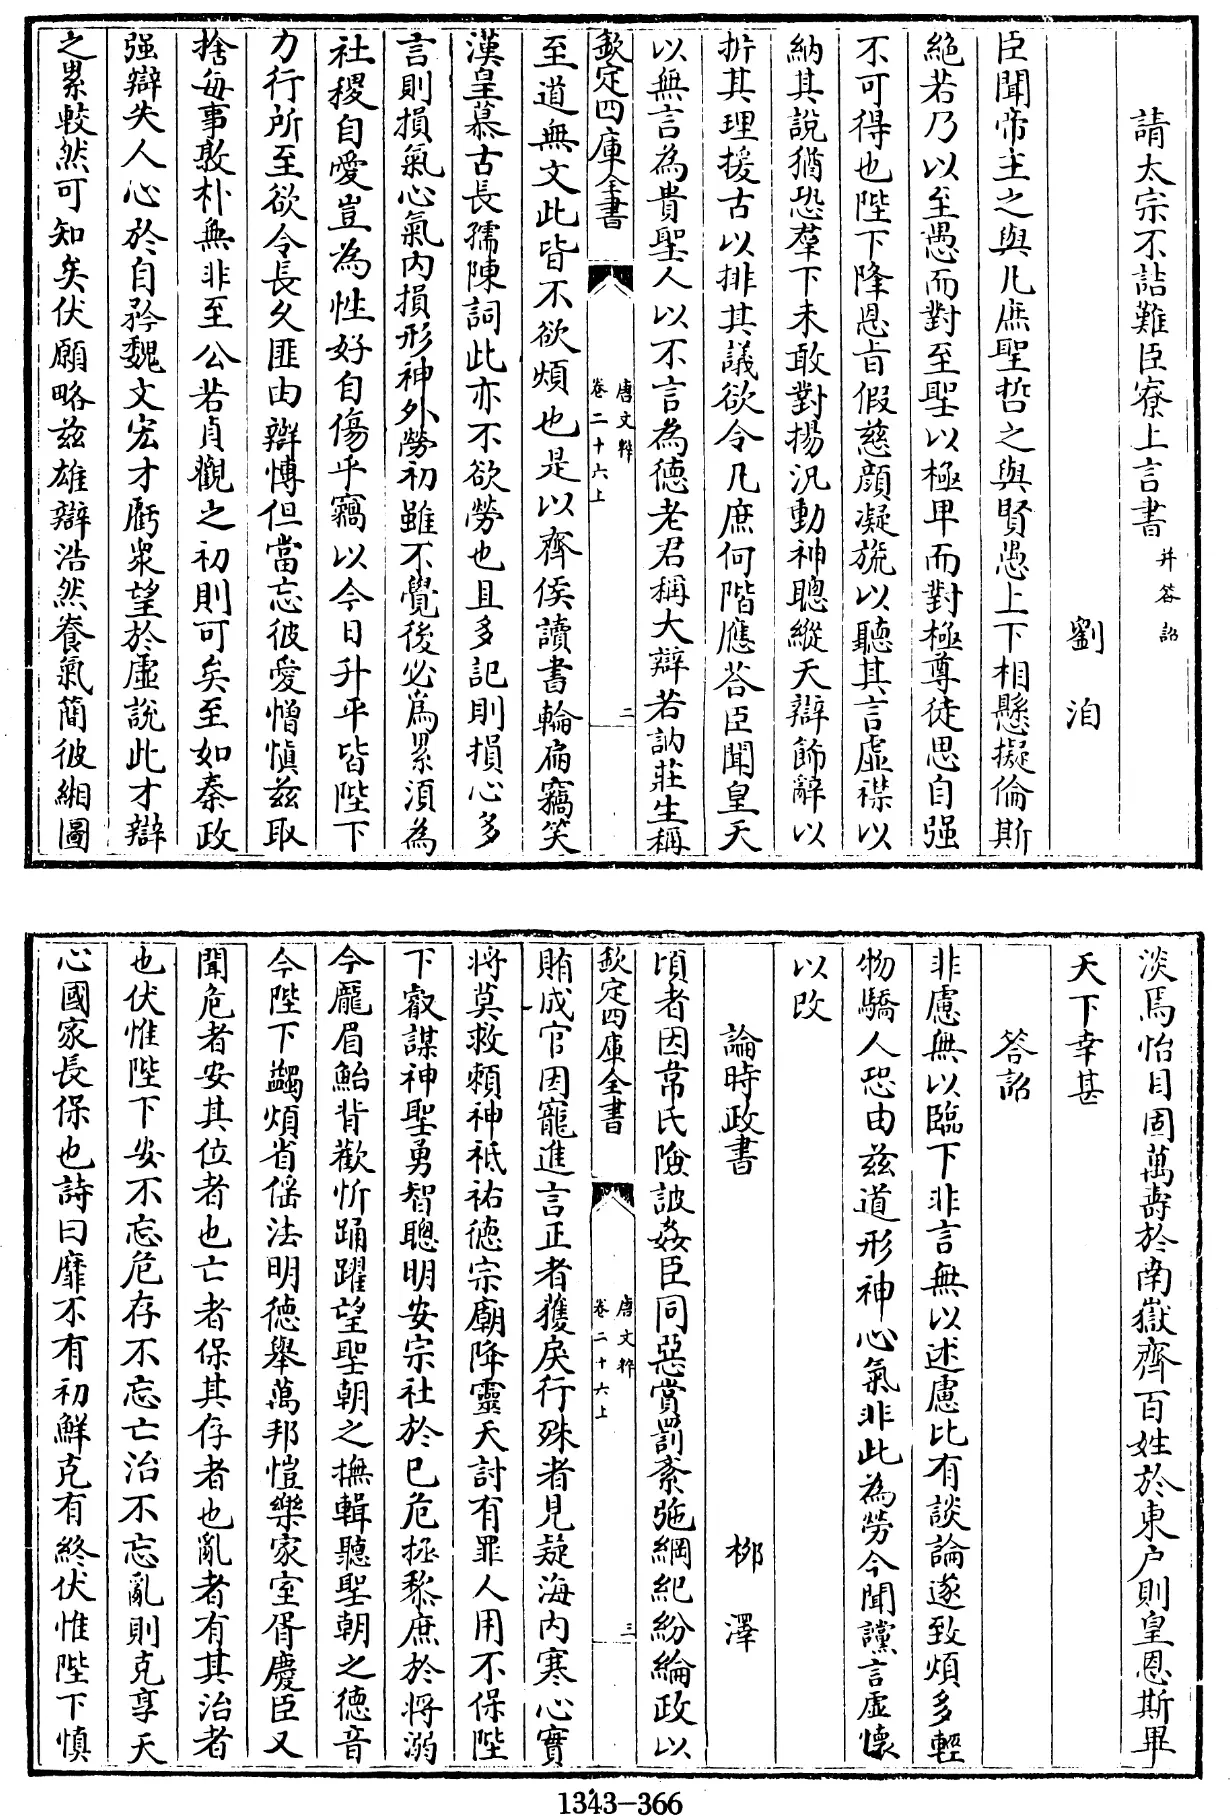 請太宗不詰難臣寮上言書并答詔
劉洎
臣聞帝主之與凡庶聖哲之與賢愚上下相懸擬倫斯
絕若乃以至愚而對至聖以極卑而對極尊徒思自强
不可得也陛下降恩旨假慈顔凝旒以聽其言虛襟以
納其說猶恐羣下未敢對揚况動神聰縱天辯飾辭以
折其理援古以排其議欲令凡庶何階應荅臣聞皇天
以無言為貴聖人以不言為德老君稱大辯若訥莊生稱
欽定四庫全書
唐文粹
卷二十六上
二
至道無文此皆不欲煩也是以齊侯讀書輪扁竊笑
漢皇慕古長孺陳詞此亦不欲勞也且多記則損心多
言則損氣心氣内損形神外勞初雖不覺後必爲累須為
社稷自愛豈為性好自傷乎竊以今日升平皆陛下
力行所至欲令長久匪由辯博但當忘彼愛憎慎兹取
捨每事敦朴無非至公若貞觀之初則可矣至如秦政
强辯失人心於自矜魏文宏才虧衆望於虛說此才辯
之累較然可知矣伏願略兹雄辯浩然養氣簡彼緗圖
淡焉怡目固萬壽於南嶽齊百姓於東户則皇恩斯畢
天下幸甚
答詔
非慮無以臨下非言無以述慮比有談論遂致煩多輕
物驕人恐由兹道形神心氣非此為勞今聞讜言虛懷
以改
論時政書
柳澤
頃者因韋氏險詖姦臣同惡賞罰紊弛綱紀紛綸政以
欽定四庫全書
唐文粹
卷二十六上
三
賄成官因寵進言正者獲戾行殊者見疑海内寒心實
將莫救賴神祗祐德宗廟降靈天討有罪人用不保陛
下叡謀神聖勇智聰明安宗社於已危拯黎庶於將溺
今龎眉鮐背歡忻踊躍望聖朝之撫輯聽聖朝之德音
今陛下蠲煩省傜法明德舉萬邦愷樂家室胥慶臣又
聞危者安其位者也亡者保其存者也亂者有其治者
也伏惟陛下安不忘危存不忘亡治不忘亂則克享天
心國家長保也詩曰靡不有初鮮克有終伏惟陛下慎
1343-366